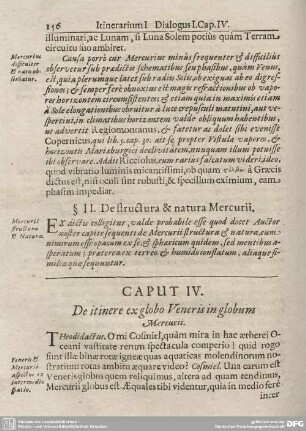 156 Itinerarium I. Dialogus I. Cap. IV.
illuminari, ac Lunam, si Luna Solem potiùs quàm Terram
circuitu suo ambiret.
Mercurius
difficulter
& rarò obsservatur.
Causa porrò cur Mercurius minùs frequenter & difficiliùs
observetur sub prædictis schematibus seu phasibus, quàm Venus,
est, quia plerumque latet sub radiis Solis, ob exiguas ab eo digressiones;
& semper ferè obnoxius est magis refractionibus ob vapores
horizontem circumsistentes; & etiam quia in maximis etiam
à Sole elongationibus obruitur à luce crepusculi matutini, aut vespertini,
in climatibus horizontem valde obliquum habentibus,
ut advertit Regiomontanus, & fatetur ac dolet sibi evenisse
Copernicus, qui lib. 5. cap. 30. ait se propter Vistulæ vapores, &
horizontis declivitatem, nunquam illum potuisse
ibi observare. Addit Ricciolus, eum rariùs salvatum videri, ideo,
quod vibratio luminis micantissimi, ob quam à Græcis
dictus est, nisi oculi sint robusti, & specillum eximium, eam
phasim impediat.
§ II. De structura & natura Mercurii.
Mercurii
structura
& Natura.
Ex dictis colligitur, valde probabile esse quod docet Auctor
noster capite sequenti de Mercurii structura & natura, eum
nimirum esse opacum ex se, & sphæricum quidem, sed montibus asperatum;
præterea ex terreo & humido constatum, aliaque similia
quæ sequuntur.
CAPUT IV.
De itinere ex globo Veneris in globum
Mercurii.
Veneris &
Mercurii
aspectus ex
intermedio
spatio.
Theodidactus. O mi Cosmiel, quàm mira in hac ætherei Oceani
vastitate rerum spectacula comperio! quid quod rogo
sunt illæ binæ rotæ igneæ quas aquaticas molendinorum nostratium
rotas ambitu æquare video? Cosmiel. Una earum est
Veneris globus quem reliquimus, altera ad quam tendimus,
Mercurii globus est. Æquales tibi videntur, quia in medio ferè
inter